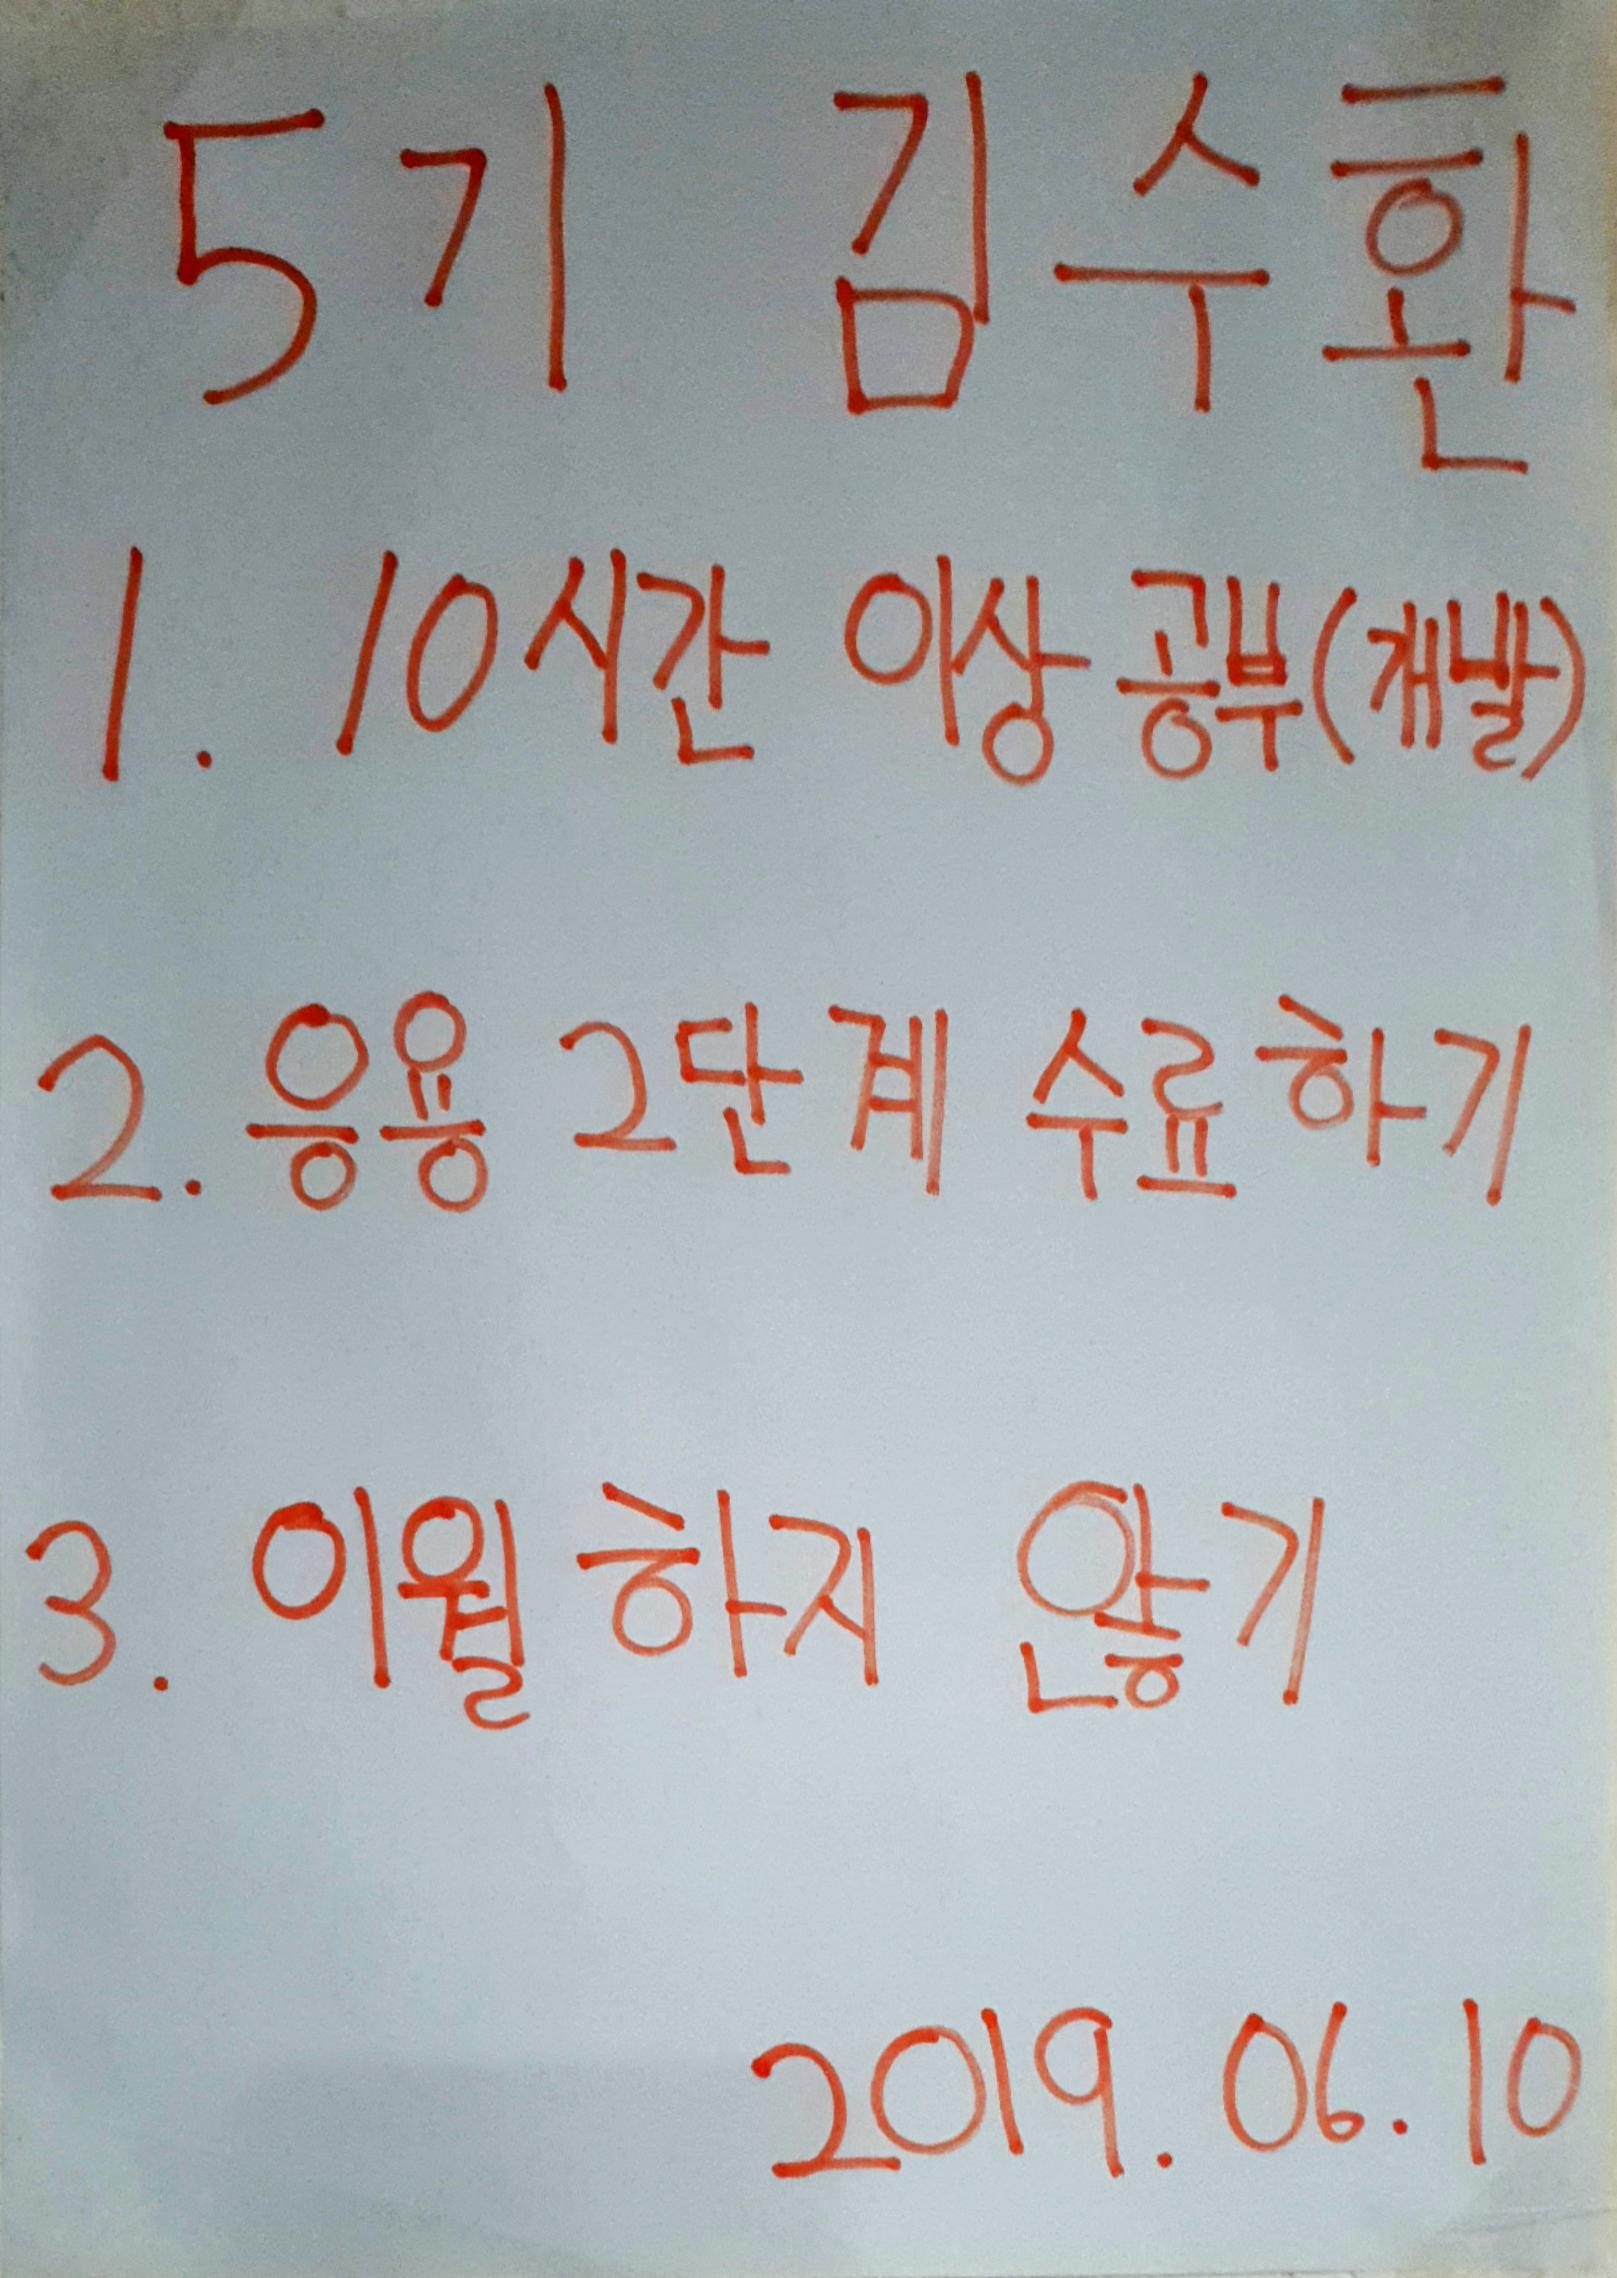 5기 김수환
1. 10시간 이상 공부(개발)
2. 응용 2단계 수료하기
3. 이월하지 않기
2019.06.10